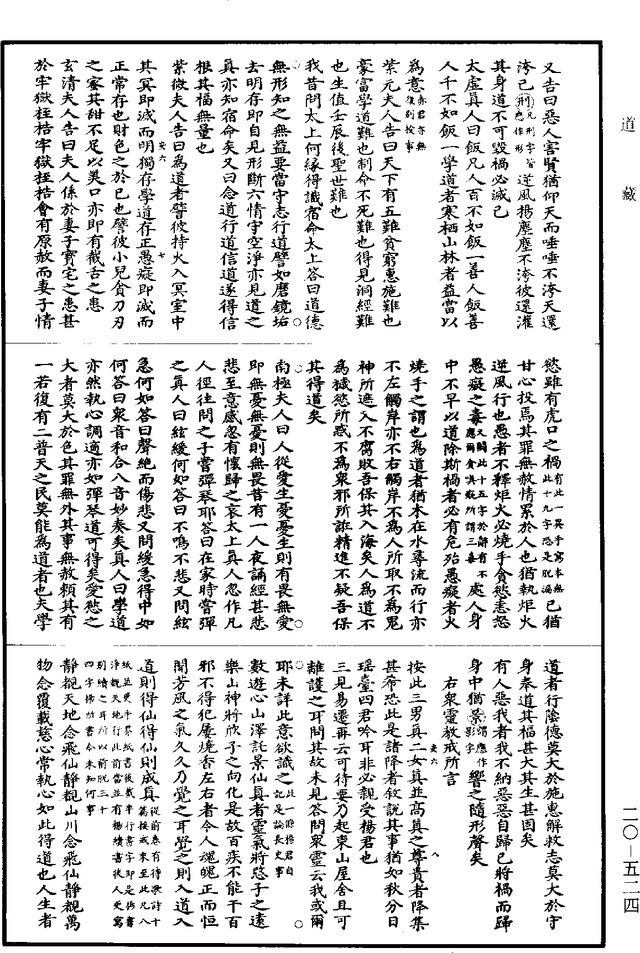 道藏
又告曰惡人害賢猶仰天而唾唾不洿天還
洿己刑凡刑字皆應作形逆風揚塵塵不洿彼還灌
其身道不可毀禍必滅己
太虛真人曰飯凡人百不如飯一善人飯善
人千不如飯一學道者寒栖山林者益當以
為意赤君亦無復別授事
紫元夫人告曰天下有五難貧窮惠施難也
豪富學道難也制命不死難也得見洞經難
也生值壬辰後聖世難也
我昔問太上何緣得識宿命太上答曰道德
無形知之無益要當守志行道譬如磨鏡垢
去明存即自見形斷六情守空淨亦見道之
真亦知宿命矣又曰念道行道信道遂得信
根其福無量也
紫微夫人告曰為道者譬彼持火入冥室中
其冥即滅而明獨存學道存正愚癡即滅而
正常存也財色之於己也譬彼小兒貪刀刃
之蜜其甜不足以美口亦即有截舌之患
玄清夫人告曰夫人係於妻子寶宅之患甚
於牢獄桎梏牢獄桎梏會有原赦而妻子情
慾雖有虎口之禍有此一異手寫本無此十九字恐是脫漏己猶
甘心投焉其罪無赦情累於人也猶執炬火
逆風行也愚者不釋炬火必燒手貪慾恚怒
愚癡之毒又闕此十五字於辭有不應爾貪真最所謂三毒處人身
中不早以道除斯禍者必有危殆愚癡者火
燒手之謂也為道者猶木在水尋流而行亦
不左觸岸亦不右觸岸不為人所取不為鬼
神所遮又不腐敗吾保其入海矣人為道不
為穢慾所惑不為眾邪所誑精進不疑吾保
其得道矣
南極夫人曰人從愛生憂憂生則有畏無愛
即無憂無憂則無畏昔有一人夜誦經甚悲
悲至意感忽有懷歸之哀太上真人忽作凡
人徑往問之子嘗彈琴耶答曰在家時嘗彈
之真人曰絃緩何如答曰不鳴不悲又問絃
急何如答曰聲絕而傷悲又問緩急得中如
何答曰眾音和合八音妙奏矣真人曰學道
亦然執心調適亦如彈琴道可得矣愛慾之
大者莫大於色其罪無外其事無赦賴其有
一若復有二普天之民莫能為道者也夫學
道者行陰德莫大於施惠解救志莫大於守
身奉道其福甚大其生甚固矣
有人惡我者我不納惡惡自歸己將禍而歸
身中猶景謂應作影字響之隨形聲矣
右眾靈教戒所言
按此三男真二女真並高真之尊貴者降集
甚希恐此是諸降者敘說其事猶如秋分日
瑤臺四君吟耳非必親受楊君也
三見易遷再云可待要乃起東山屋舍且可
離護之耳問其故未見答問眾靈云我或爾
耶未詳此意欲識之此一條楊君自記是論長史事
數遊心山澤託景仙真者靈氣將愍子之遠
樂山神將欣子之向化是故百疾不能干百
邪不得犯屢燒香左右者令人魂魄正而恒
聞芳風之氣久久乃覺之耳覺之則入道入
道則得仙得仙則成真
靜觀天地念飛仙靜觀山川念飛仙靜觀萬
物念覆載慈心常執心如此得道也人生者
二〇—五二四